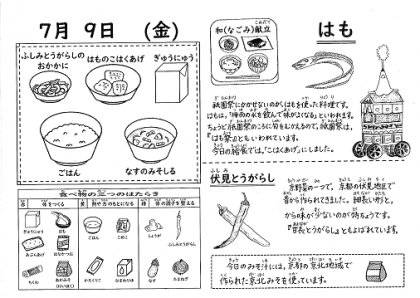 7月 9日 (金)
ふしみとうがらしの
おかかに
はものこはくあげ
ぎゅうにゅう
ごはん
なすのみそしる
食べ物の三つのはたらき
赤 体をつくる
黄 熱や力のもとになる
緑 体の調子を整える
ぎゅうにゅう
はも
ごはん
こめこ
しょうが
ふしみとうがらし
和(なごみ)献立
こんだて
はも
ぎおんまつり
祇園祭にかかせないのが、はもを使った料理です。
はもは、「梅雨の水を飲んで味がよくなる」といわれます。
ちょうど祇園祭のころに旬をむかえるので、祇園祭は、
『はも祭』ともいわれています。
今日の給食では、「こはくあげ」にしました。
ふしみ
伏見とうがらし
京野菜の一つで、京都の伏見地区で
昔から作られてきました。細長い形と、
から味が少ないのが特ちょうです。
『甘長とうがらし』ともよばれています。
今日のみそ汁には、京都の京北地域で
作られた京北みそを使っています。